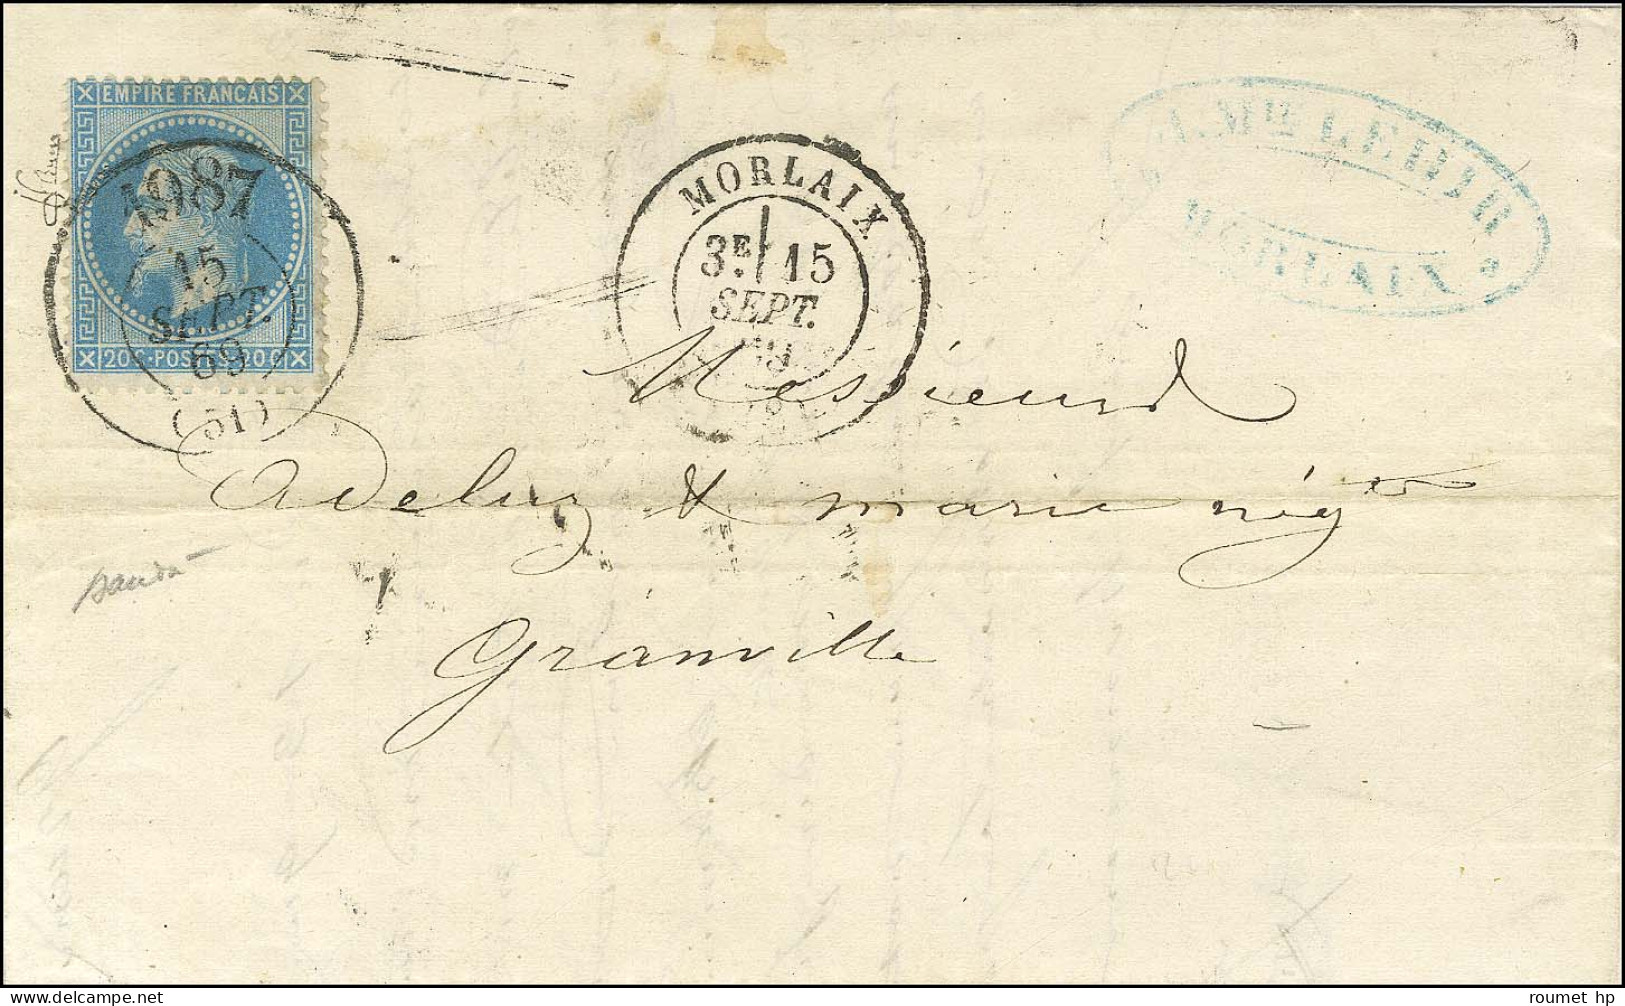 EMPIRE FRANCAIS
1987
15
SEPT.
69
(51)
20 c POSTES 20 c
MORLAIX
3E 15
SEPT.
LEHIR
MORLAIX
Messieurs
Adeluz & Marie nég
Granville
roumet hp